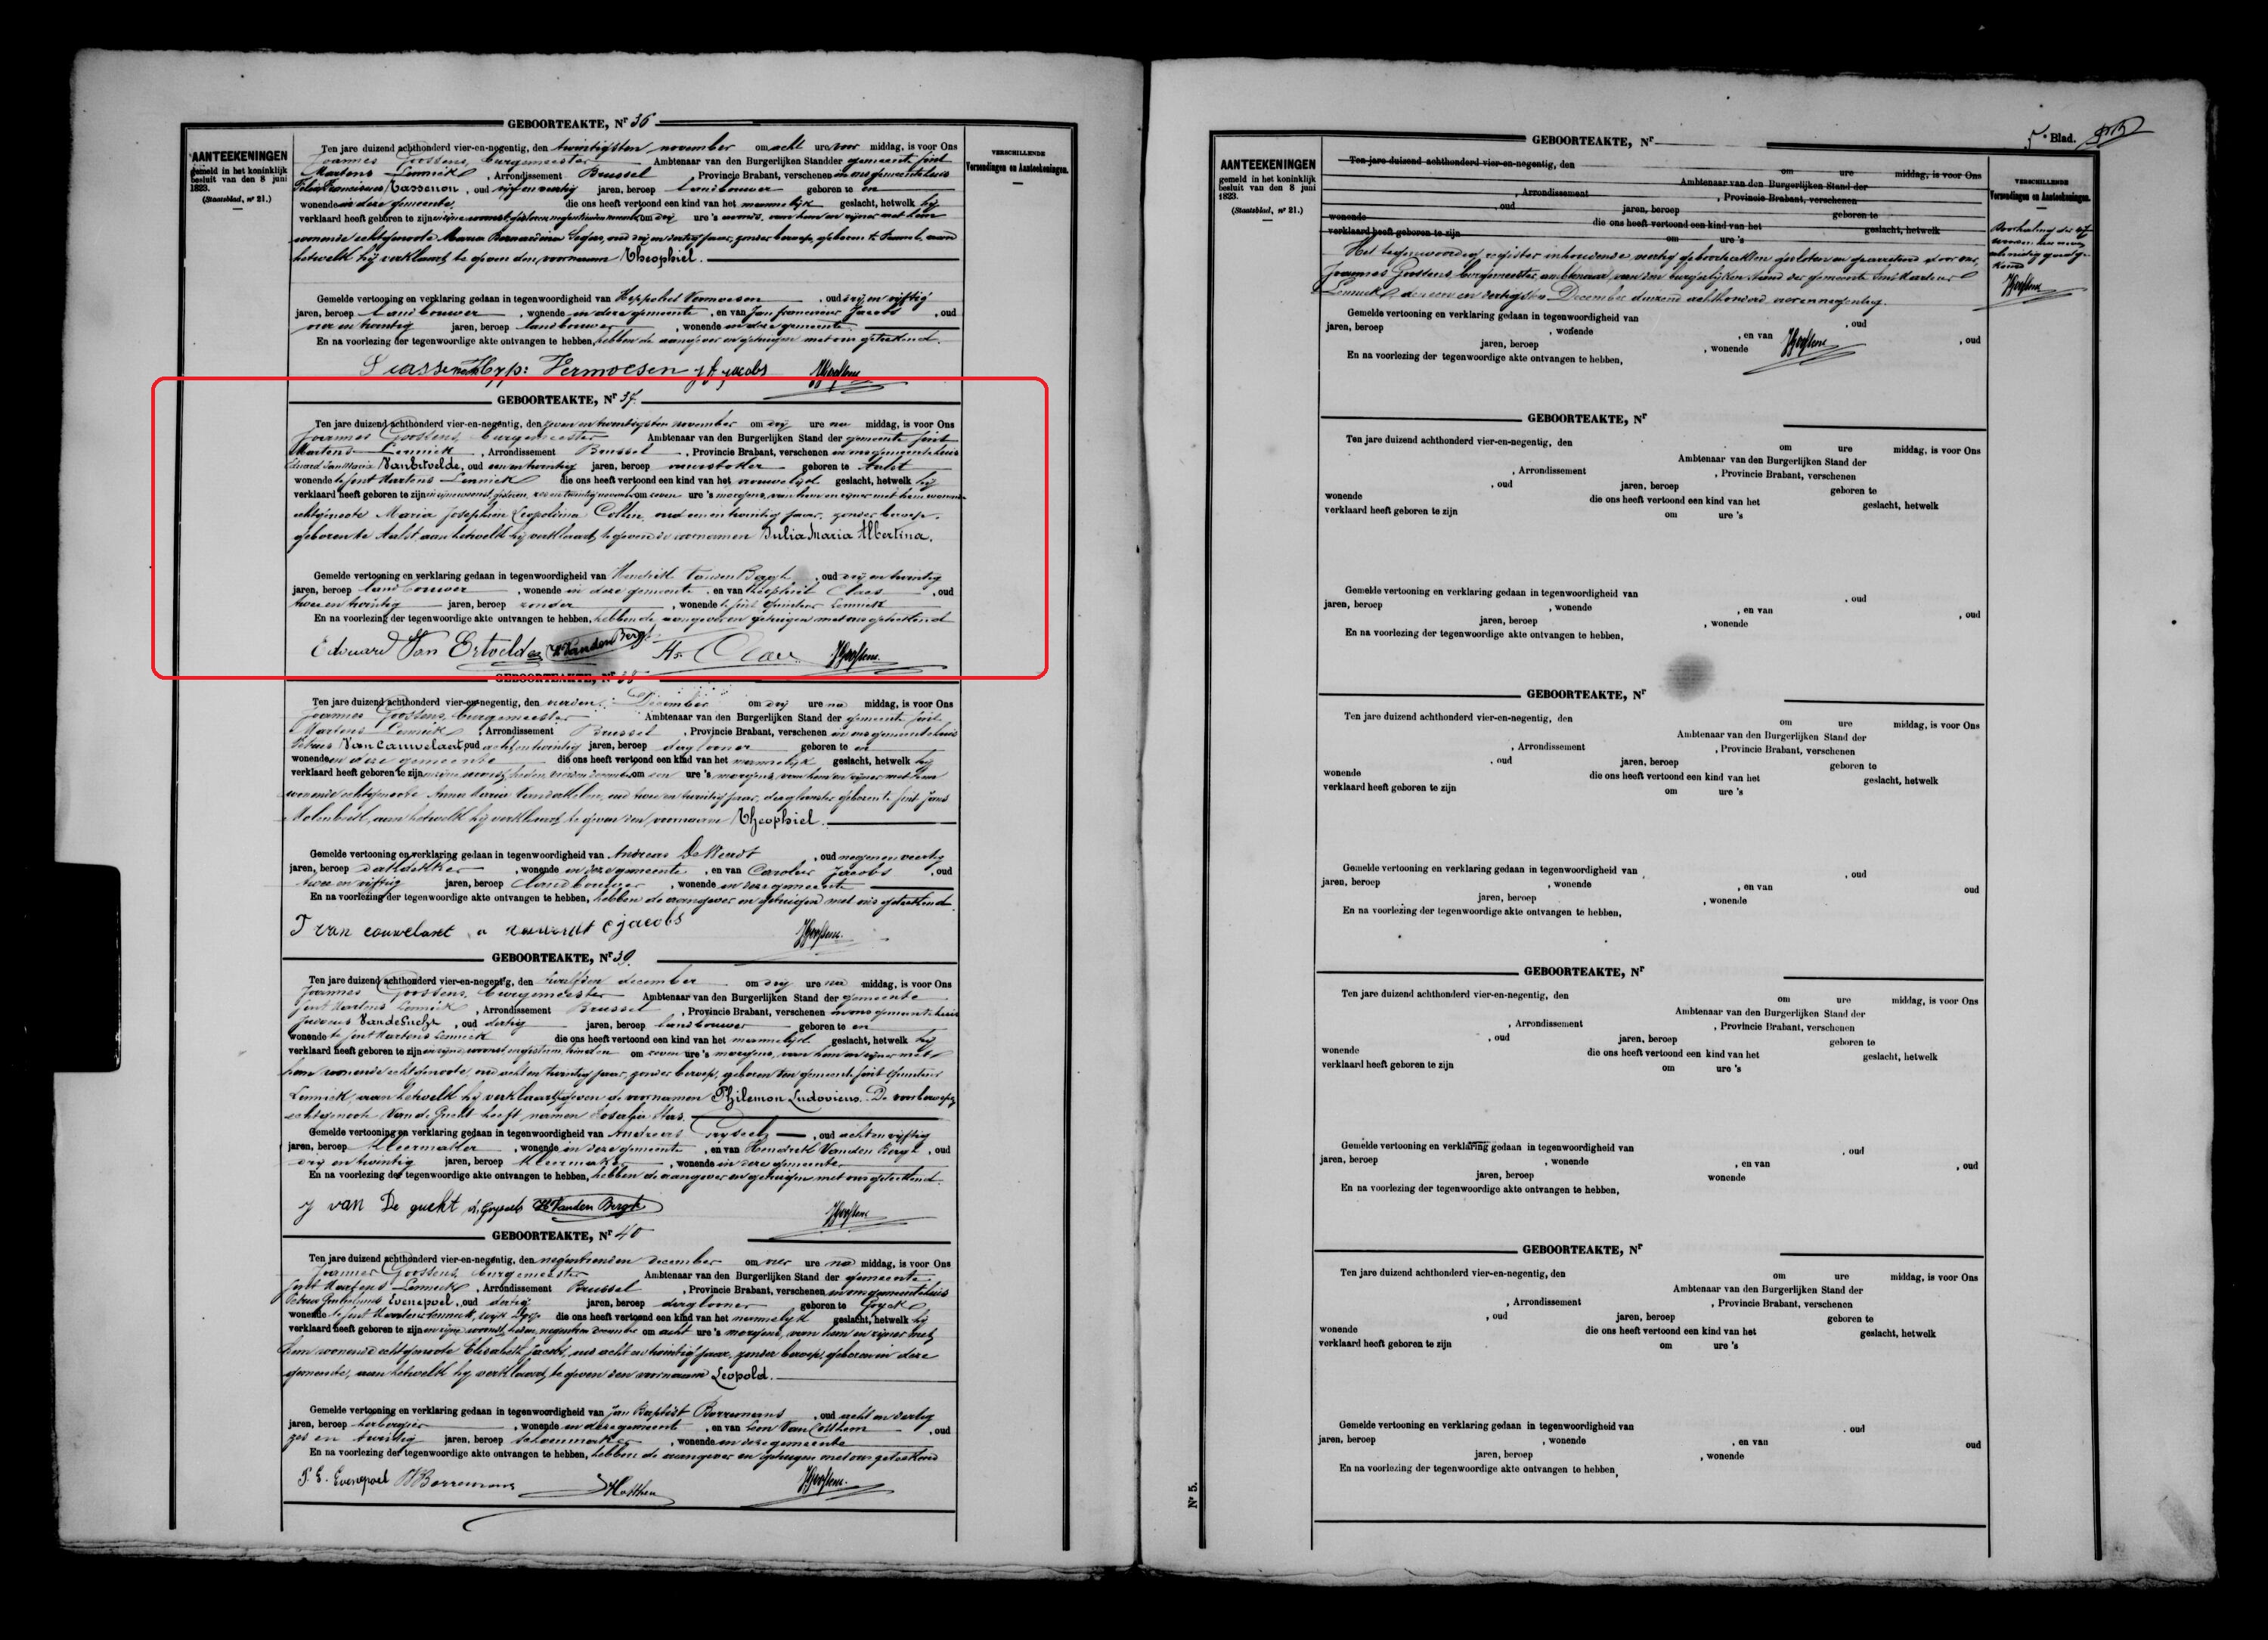 GEBOORTEAKTE, Nr 36
AANTEEKENINGEN
gemeld in het koninklijk
besluit van den 8 juni
1823.
(Staatsblad, nr 21.)
VERSCHILLENDE
Verzendingen en Aanteekeningen.
Ten jare duizend achthonderd vier-en-negentig, den twintigsten november om acht ure voor middag, is voor Ons
Joannes Goossens, burgemeester Ambtenaar van den Burgerlijken Stand der gemeente Sint
Martens Lennick, Arrondissement Brussel, Provincie Brabant, verschenen in ons gemeentehuis
Franciscus Tassenon, oud vijf en veertig jaren, beroep landbouwer geboren te en
wonende in deze gemeente, die ons heeft vertoond een kind van het mannelijk geslacht, hetwelk hij
verklaard heeft geboren te zijn in zijne woonst, gisteren negentienden november om drij ure 's avonds, van hem en zijner met hem
wonende echtgenoote Maria Bernardina Segers, oud drij en dertig jaar, zonder beroep, geboren te aan
hetwelk hij verklaart te geven den voornaam Theophiel.
Gemelde vertooning en verklaring gedaan in tegenwoordigheid van Hyppoliet Vermoesen, oud drij en vijftig
jaren, beroep landbouwer, wonende in deze gemeente, en van Jan Franciscus Jacobs, oud
vier en twintig jaren, beroep landbouwer, wonende in deze gemeente.
En na voorlezing der tegenwoordige akte ontvangen te hebben, hebben de aangever en getuigen met ons geteekend.
Hyp: Vermoesen J F Jacobs JGoossens
GEBOORTEAKTE, Nr 37.
Ten jare duizend achthonderd vier-en-negentig, den zeven en twintigsten november om drij ure na middag, is voor Ons
Joannes Goossens, burgemeester Ambtenaar van den Burgerlijken Stand der gemeente Sint
Martens Lennick, Arrondissement Brussel, Provincie Brabant, verschenen in ons gemeentehuis
Eduard Jan Maria Van Ertvelde, oud een en twintig jaren, beroep geboren te Aalst
wonende te Sint Martens Lennick die ons heeft vertoond een kind van het vrouwelijk geslacht, hetwelk hij
verklaard heeft geboren te zijn in zijne woonst, gisteren, zes en twintig november om zeven ure 's morgens, van hem en zijner met hem wonende
echtgenoote Maria Josephina Leopoldina Collin, oud een en twintig jaar, zonder beroep,
geboren te Aalst, aan hetwelk hij verklaart te geven de voornamen Julia Maria Albertina.
Gemelde vertooning en verklaring gedaan in tegenwoordigheid van Hendrik Vanden Bergh, oud drij en twintig
jaren, beroep landbouwer, wonende in deze gemeente, en van Theophiel Claes, oud
twee en twintig jaren, beroep zonder, wonende te Sint Quintens Lennick
En na voorlezing der tegenwoordige akte ontvangen te hebben, hebben de aangever en getuigen met ons geteekend
Edouard Van Ertvelde H Vanden Bergh JGoossens
GEBOORTEAKTE, Nr 38
Ten jare duizend achthonderd vier-en-negentig, den vierden December om drij ure na middag, is voor Ons
Joannes Goossens, burgemeester Ambtenaar van den Burgerlijken Stand der gemeente Sint
Martens Lennick, Arrondissement Brussel, Provincie Brabant, verschenen in ons gemeentehuis
Petrus Van Cauwelaert, oud acht en twintig jaren, beroep daglooner geboren te en
wonende in deze gemeente die ons heeft vertoond een kind van het mannelijk geslacht, hetwelk hij
verklaard heeft geboren te zijn in zijne woonst, heden vierden december om een ure 's morgens, van hem en zijner met hem
wonende echtgenoote Anna Maria oud twee en twintig jaar, dagloonster geboren te Sint Jans
Molenbeek, aan hetwelk hij verklaart te geven den voornaam Theophiel.
Gemelde vertooning en verklaring gedaan in tegenwoordigheid van Andreas De Weerdt, oud negen en veertig
jaren, beroep dakdekker, wonende in deze gemeente, en van Carolus Jacobs, oud
twee en vijftig jaren, beroep landbouwer, wonende in deze gemeente
En na voorlezing der tegenwoordige akte ontvangen te hebben, hebben de aangever en getuigen met ons geteekend.
van cauwelaert C jacobs JGoossens
GEBOORTEAKTE, Nr 39.
Ten jare duizend achthonderd vier-en-negentig, den twaalfden december om drij ure na middag, is voor Ons
Joannes Goossens, burgemeester Ambtenaar van den Burgerlijken Stand der gemeente
Sint Martens Lennick, Arrondissement Brussel, Provincie Brabant, verschenen in ons gemeentehuis
Van de Gucht, oud dertig jaren, beroep landbouwer geboren te en
wonende te Sint Martens Lennick die ons heeft vertoond een kind van het mannelijk geslacht, hetwelk hij
verklaard heeft geboren te zijn in zijne woonst om zeven ure 's morgens, van hem en zijner met
hem wonende echtgenoote, oud acht en twintig jaar, zonder beroep, geboren ter gemeente Sint Quintens
Lennick, aan hetwelk hij verklaart te geven de voornamen Philemon Ludovicus. De voorberoepen
echtgenoote Van de Gucht heeft namen Rosalia Stas.
Gemelde vertooning en verklaring gedaan in tegenwoordigheid van Andreas, oud acht en vijftig
jaren, beroep kleermaker, wonende in deze gemeente, en van Hendrik Vanden Bergh, oud
drij en twintig jaren, beroep kleermaker, wonende in deze gemeente
En na voorlezing der tegenwoordige akte ontvangen te hebben, hebben de aangever en getuigen met ons geteekend.
J van De gucht H Vanden Bergh JGoossens
GEBOORTEAKTE, Nr 40
Ten jare duizend achthonderd vier-en-negentig, den negentienden december om vier ure na middag, is voor Ons
Joannes Goossens, burgemeester Ambtenaar van den Burgerlijken Stand der gemeente
Sint Martens Lennick, Arrondissement Brussel, Provincie Brabant, verschenen in ons gemeentehuis
Petrus Evenepoel, oud dertig jaren, beroep daglooner geboren te Goyck
wonende te Sint Martens Lennick, die ons heeft vertoond een kind van het mannelijk geslacht, hetwelk hij
verklaard heeft geboren te zijn in zijne woonst, heden, negentien december om acht ure 's morgens, van hem en zijner met
hem wonende echtgenoote Elisabeth Jacobs, oud acht en twintig jaar, zonder beroep, geboren in deze
gemeente, aan hetwelk hij verklaart te geven den voornaam Leopold.
Gemelde vertooning en verklaring gedaan in tegenwoordigheid van Jan Baptist Borremans, oud acht en dertig
jaren, beroep herbergier, wonende in deze gemeente, en van Leon Van Cotthem, oud
zes en twintig jaren, beroep schoenmaker, wonende in deze gemeente
En na voorlezing der tegenwoordige akte ontvangen te hebben, hebben de aangever en getuigen met ons geteekend
P. E. Evenepoel Borremans JGoossens
GEBOORTEAKTE, Nr
5e Blad.
AANTEEKENINGEN
gemeld in het koninklijk
besluit van den 8 juni
1823.
(Staatsblad, nr 21.)
VERSCHILLENDE
Verzendingen en Aanteekeningen.
Ten jare duizend achthonderd vier-en-negentig, den om ure middag, is voor Ons
Ambtenaar van den Burgerlijken Stand der
, Arrondissement , Provincie Brabant, verschenen
, oud jaren, beroep geboren te
wonende die ons heeft vertoond een kind van het geslacht, hetwelk
verklaard heeft geboren te zijn om ure 's
Het tegenwoordig register inhoudende veertig geboorteakten gesloten en gearresteerd door ons,
Joannes Goossens, burgemeester, ambtenaar van den burgerlijken stand der gemeente Sint Martens
Lennick, den een en dertigsten December duizend achthonderd vier en negentig.
Gemelde vertooning en verklaring gedaan in tegenwoordigheid van , oud
jaren, beroep , wonende , en van , oud
jaren, beroep , wonende
En na voorlezing der tegenwoordige akte ontvangen te hebben,
JGoossens
JGoossens
GEBOORTEAKTE, Nr
Ten jare duizend achthonderd vier-en-negentig, den om ure middag, is voor Ons
Ambtenaar van den Burgerlijken Stand der
, Arrondissement , Provincie Brabant, verschenen
, oud jaren, beroep geboren te
wonende die ons heeft vertoond een kind van het geslacht, hetwelk
verklaard heeft geboren te zijn om ure 's
Gemelde vertooning en verklaring gedaan in tegenwoordigheid van , oud
jaren, beroep , wonende , en van , oud
jaren, beroep , wonende
En na voorlezing der tegenwoordige akte ontvangen te hebben,
GEBOORTEAKTE, Nr
Ten jare duizend achthonderd vier-en-negentig, den om ure middag, is voor Ons
Ambtenaar van den Burgerlijken Stand der
, Arrondissement , Provincie Brabant, verschenen
, oud jaren, beroep geboren te
wonende die ons heeft vertoond een kind van het geslacht, hetwelk
verklaard heeft geboren te zijn om ure 's
Gemelde vertooning en verklaring gedaan in tegenwoordigheid van , oud
jaren, beroep , wonende , en van oud
jaren, beroep , wonende
En na voorlezing der tegenwoordige akte ontvangen te hebben,
GEBOORTEAKTE, Nr
Ten jare duizend achthonderd vier-en-negentig, den om ure middag, is voor Ons
Ambtenaar van den Burgerlijken Stand der
, Arrondissement , Provincie Brabant, verschenen
, oud jaren, beroep geboren te
wonende die ons heeft vertoond een kind van het geslacht, hetwelk
verklaard heeft geboren te zijn om ure 's
Gemelde vertooning en verklaring gedaan in tegenwoordigheid van , oud
jaren, beroep , wonende , en van , oud
jaren, beroep wonende
En na voorlezing der tegenwoordige akte ontvangen te hebben,
GEBOORTEAKTE, Nr
Ten jare duizend achthonderd vier-en-negentig, den om ure middag, is voor Ons
Ambtenaar van den Burgerlijken Stand der
, Arrondissement , Provincie Brabant, verschenen
, oud jaren, beroep geboren te
wonende die ons heeft vertoond een kind van het geslacht, hetwelk
verklaard heeft geboren te zijn om ure 's
Gemelde vertooning en verklaring gedaan in tegenwoordigheid van , oud
jaren, beroep , wonende , en van oud
jaren, beroep , wonende
En na voorlezing der tegenwoordige akte ontvangen te hebben,
Nr 5.